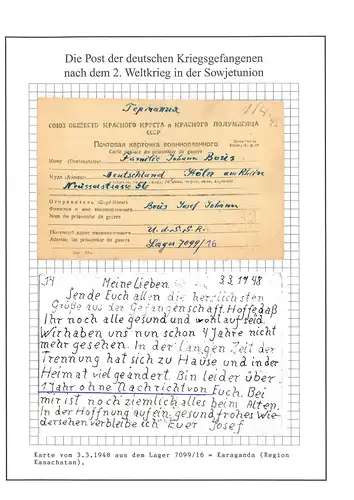 Die Post der deutschen Kriegsgefangenen
nach dem 2. Weltkrieg in der Sowjetunion
Германия
СОЮЗ ОБЩЕСТВ КРАСНОГО КРЕСТА и КРАСНОГО ПОЛУМЕСЯЦА
СССР
Почтовая карточка военнопленного
Carte postale du prisonnier de guerre
Кому (Destinataire) Familie Johann Boris
Куда (Adresse) Deutschland Köln am Rhein
Strasse 56
Отправитель (Expéditeur)
Фамилия и имя военнопленного Boris Josef Johann
Nom du prisonnier de guerre
Почтовый адрес военнопленного U.d.S.S.R.
Adresse du prisonnier de guerre Lager 7099/16
14 Meine Lieben 3.3.1948
Sende Euch allen die herzlichsten
Grüße aus der Gefangenschaft. Hoffe daß
Ihr noch alle gesund und wohl auf seid.
Wir haben uns nun schon 4 Jahre nicht
mehr gesehen. In der langen Zeit der
Trennung hat sich zu Hause und in der
Heimat viel geändert. Bin leider über
1 Jahr ohne Nachricht von Euch. Bei
mir ist noch ziemlich alles beim Alten.
In der Hoffnung auf ein gesund frohes Wie
dersehen verbleibe ich Euer Josef
Karte vom 3.3.1948 aus dem Lager 7099/16 = Karaganda (Region
Kasachstan).